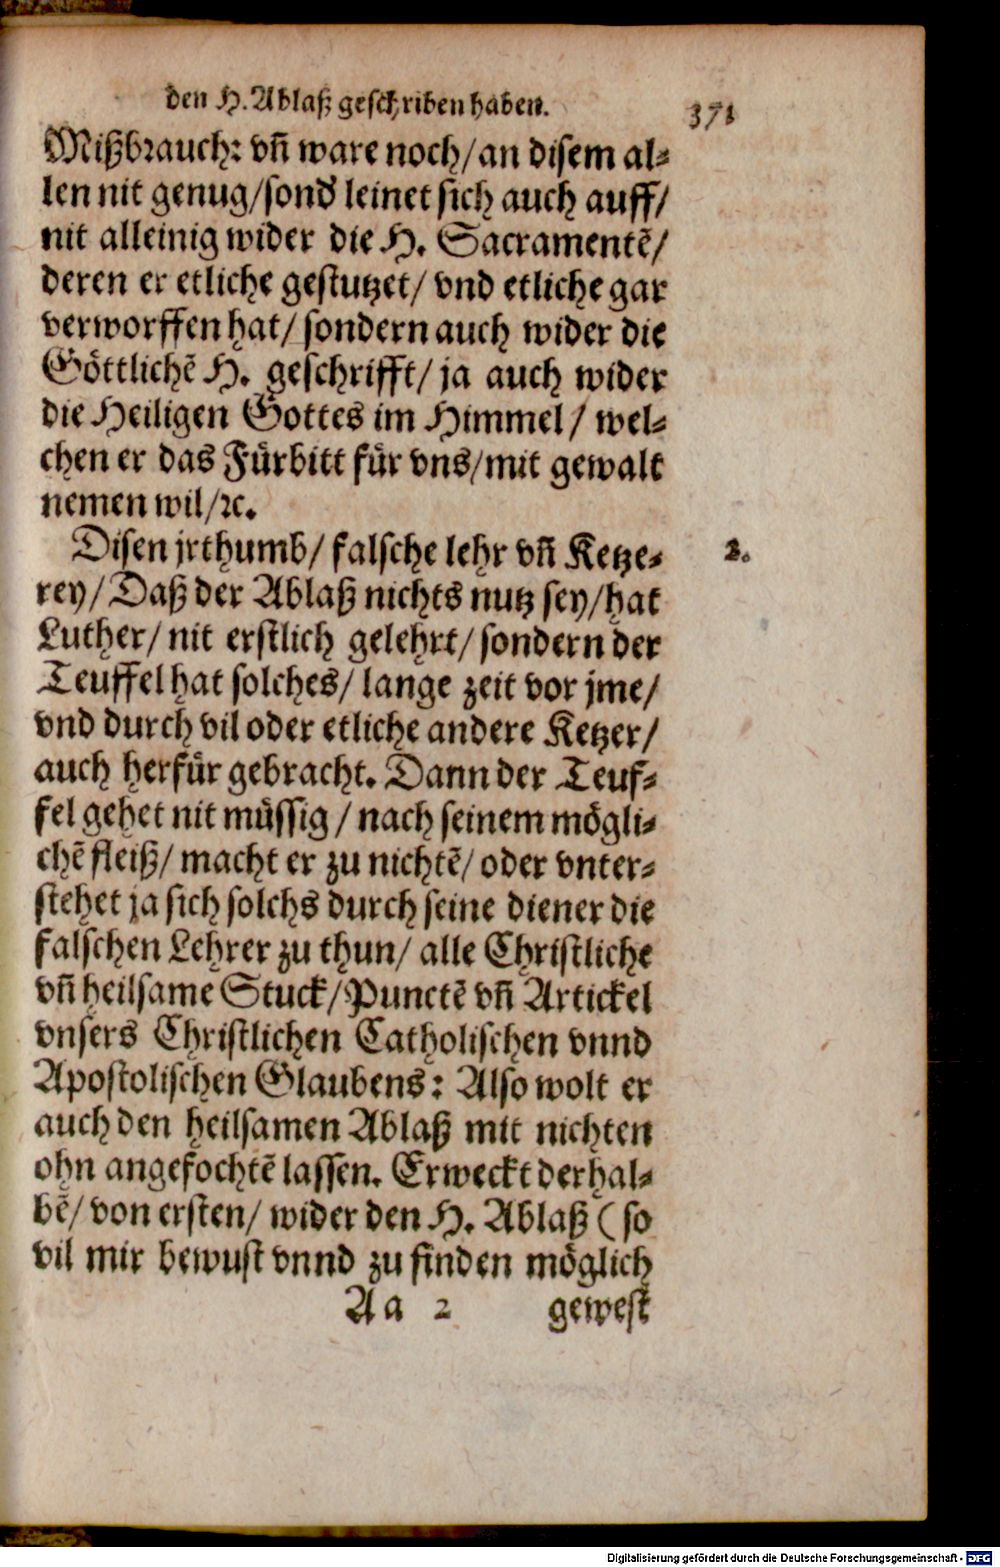 den H. Ablaß geschriben haben. 371
Mißbrauch: vñ ware noch/ an disem al⸗
len nit genug/ sond leinet sich auch auff/
nit alleinig wider die H. Sacramentẽ/
deren er etliche gestutzet/ vnd etliche gar
verworffen hat/ sondern auch wider die
Göttlichẽ H. geschrifft/ ja auch wider
die Heiligen Gottes im Himmel/ wel⸗
chen er das Fürbitt für vns/ mit gewalt
nemen wil/ ꝛc.
Disen jrthumb/ falsche lehr vñ Ketze⸗ 2.
rey/ Daß der Ablaß nichts nutz sey/ hat
Luther/ nit erstlich gelehrt/ sondern der
Teuffel hat solches/ lange zeit vor jme/
vnd durch vil oder etliche andere Ketzer/
auch herfür gebracht. Dann der Teuf⸗
fel gehet nit müssig/ nach seinem mögli⸗
chẽ fleiß/ macht er zu nichtẽ/ oder vnter⸗
stehet ja sich solchs durch seine diener die
falschen Lehrer zu thun/ alle Christliche
vñ heilsame Stuck/ Punctẽ vñ Artickel
vnsers Christlichen Catholischen vnnd
Apostolischen Glaubens: Also wolt er
auch den heilsamen Ablaß mit nichten
ohn angefochtẽ lassen. Erweckt derhal⸗
bẽ/ von ersten/ wider den H. Ablaß (so
vil mir bewust vnnd zu finden möglich
Aa 2 gewest
Digitalisierung gefördert durch die Deutsche Forschungsgemeinschaft - DFG